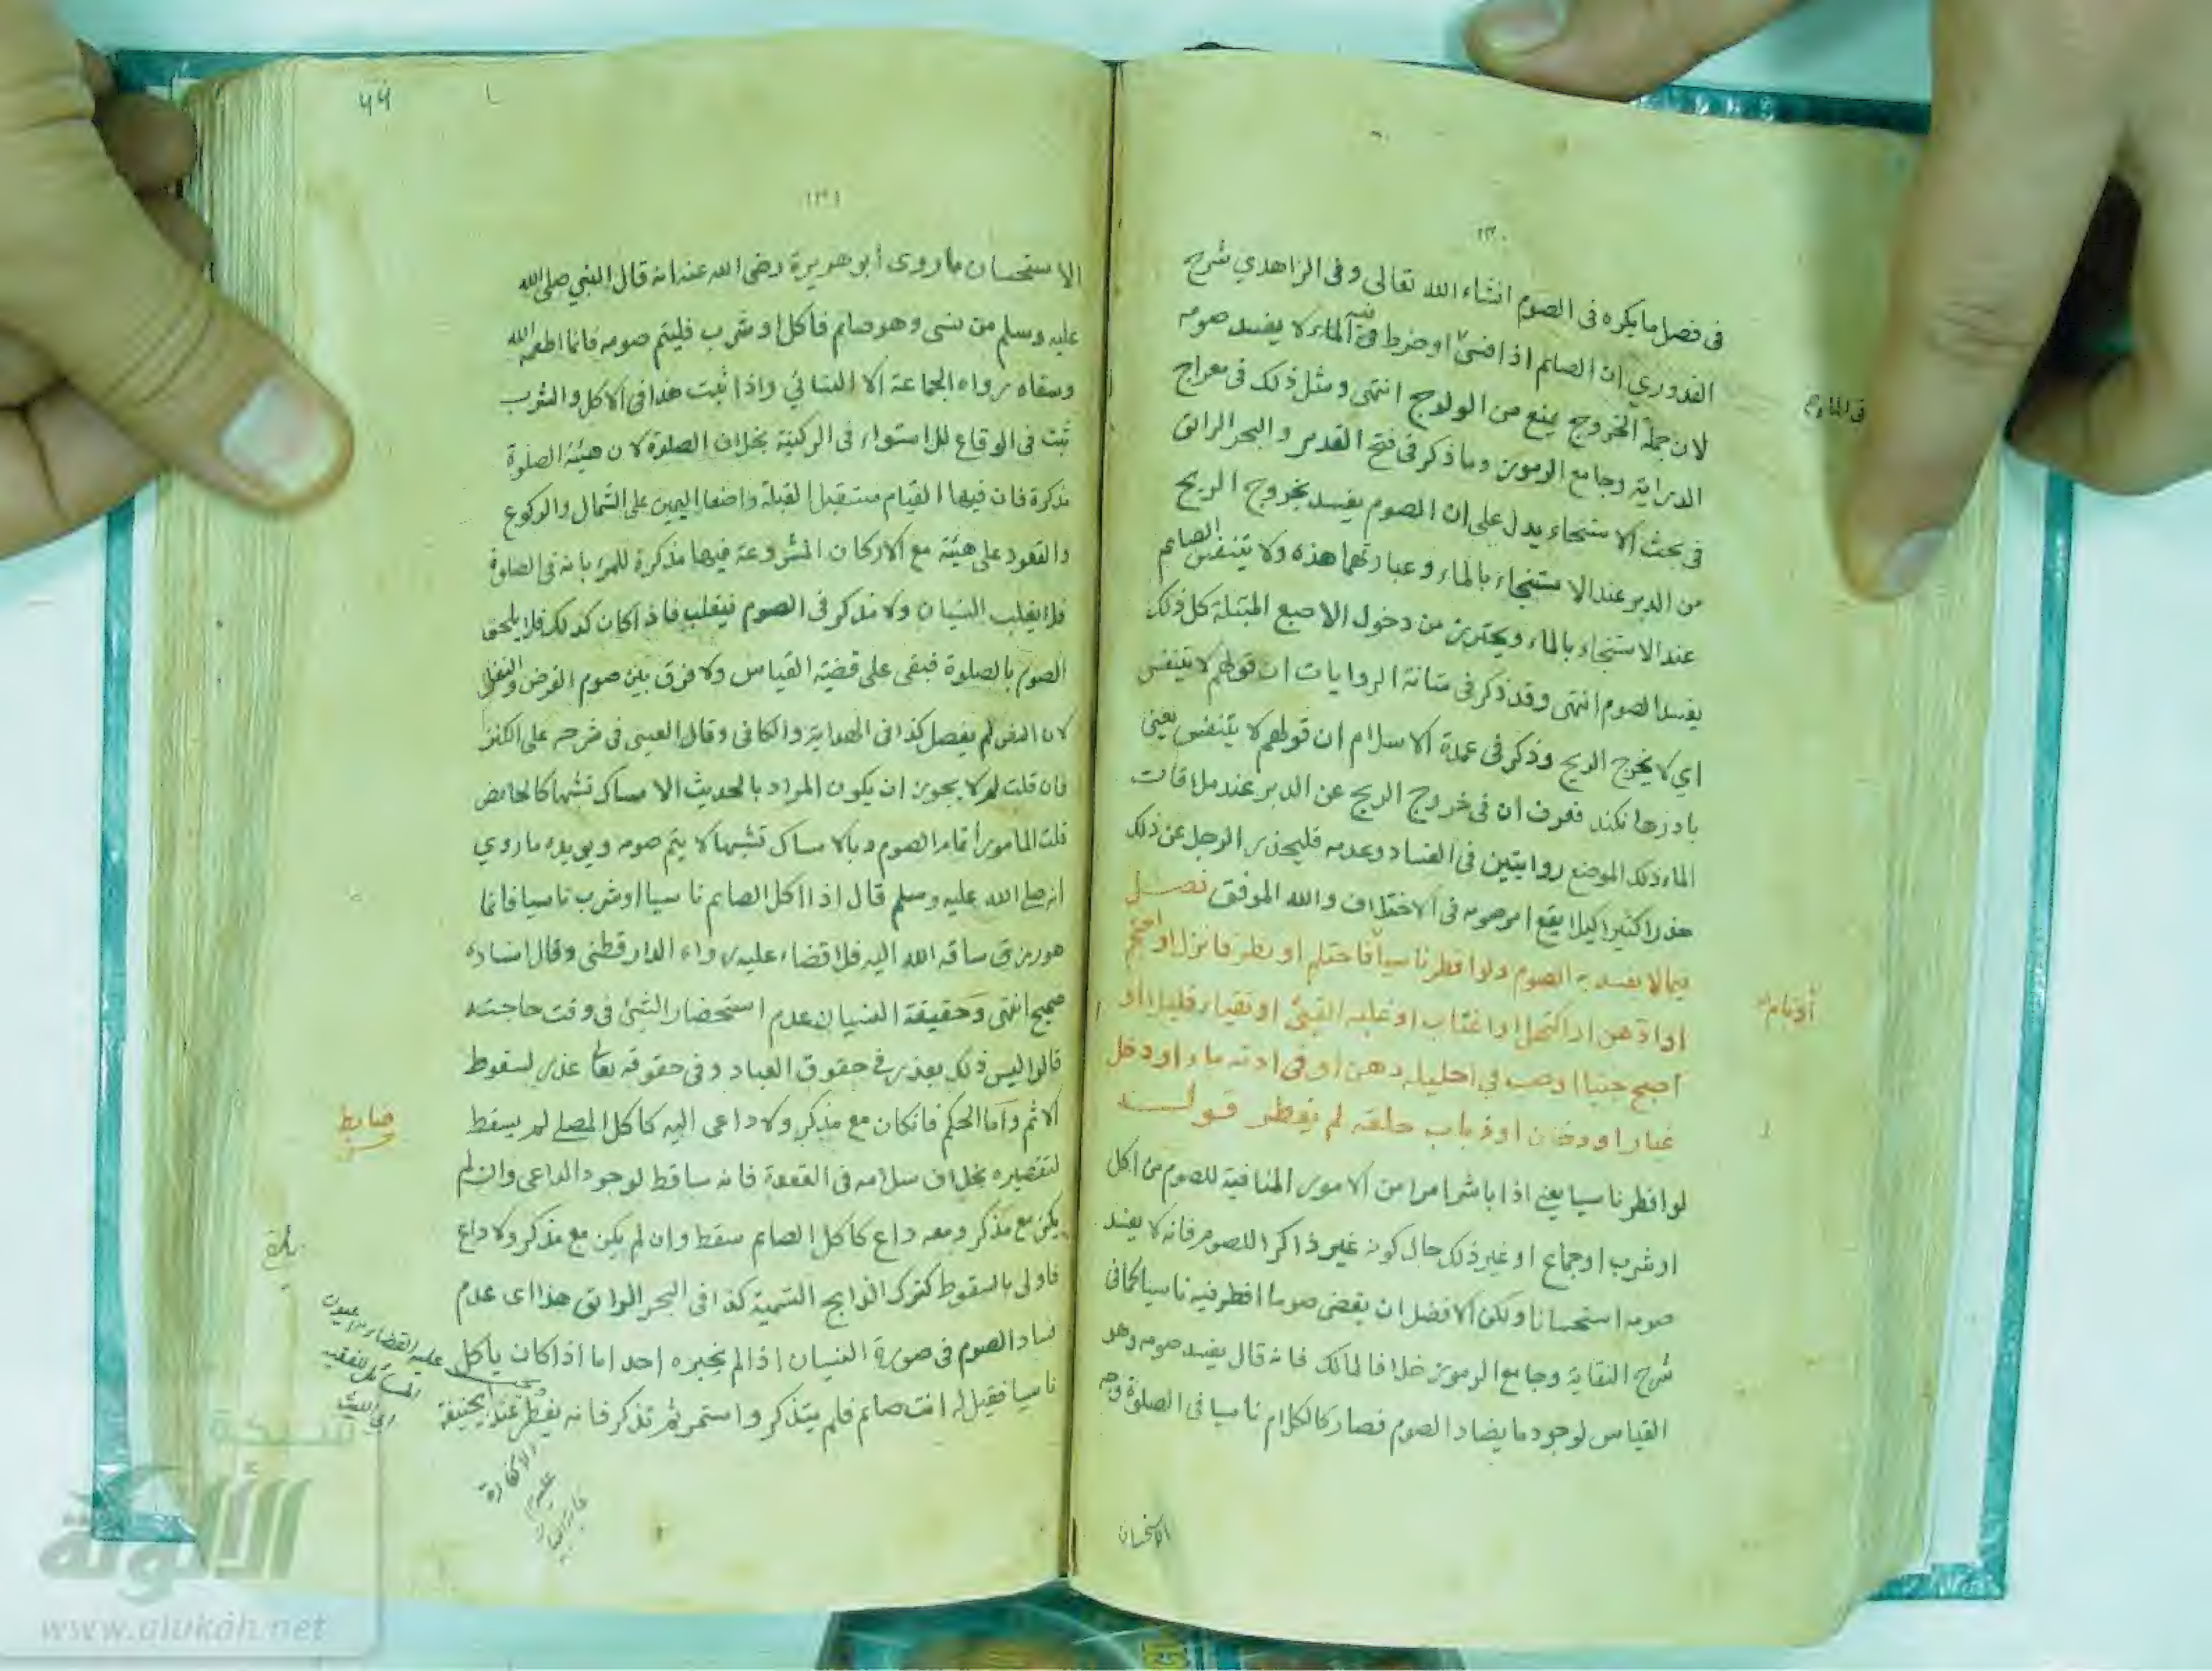 ١٣٠
فى فصل ما يكره فى الصوم انشاء الله تعالى وفى الزاهدي شرح
القدوري ان الصائم اذا فسىٰ او ضرط فى الماء لا يفسد صومه
لان جملة الخروج يمنع من الولوج انتهى ومثل ذلك فى معراج
الدراية وجامع الرموز وما ذكر فى فتح القدير والبحر الرائق
فى بحث الاستنجاء يدل على ان الصوم يفسد بخروج الريح
من الدبر عند الاستنجاء بالماء وعبارتهما هذه ولا يتنفس الصائم
عند الاستنجاء بالماء ويحترز من دخول الاصبع المبتلة كل ذلك
يفسد الصوم انتهى وقد ذكر فى متانة الروايات ان قولهم لا يتنفس
اي لا يخرج الريح وذكر فى عمدة الاسلام ان قولهم لا يتنفس يعنى
باد رها نكند فعرف ان فى خروج الريح عن الدبر عند ملاقات
الماء ذلك الموضع روايتين فى الفساد وعدمه فليحذر الرجل عن ذلك
حذرا كثيرا كيلا يقع امر صومه فى الاختلاف والله الموفق فصل
فيما لا يفسد به الصوم ولو افطر ناسيا فاحتلم او نظر فانزل او احتجم
او ادهن او اكتحل او اغتاب او غلبه القيئ او تقياء قليلا او
اصبح جنبا او صب في احليله دهن او فى اذنه ماء او دخل
غبار او دخان او ذباب حلقه لم يفطر قولــه
لو افطر ناسيا يعني اذا باشر امرا من الامور المنافية للصوم من اكل
او شرب او جماع او غير ذلك حال كونه غير ذاكر اللصوم فانه لا يفسد
صومه استحسانا ولكن الافضل ان يقضى صوما افطر فيه ناسيا كما فى
شرح النقاية وجامع الرموز خلافا لمالك فانه قال يفسد صومه وهو
القياس لوجود ما يضاد الصوم فصار كالكلام ناسيا فى الصلوة وجه
الاستحسان
١٣١
الاستحسان ما روى أبو هريرة رضى الله عنه انه قال النبي صلى الله
عليه وسلم من نسى وهو صائم فاكل او شرب فليتم صومه فانما اطعمه الله
وسقاه رواه الجماعة الا النسائي واذا ثبت هذا فى الاكل والشرب
ثبت فى الوقاع للاستواء فى الركنية بخلاف الصلوة لان هيئة الصلوة
مذكرة فان فيها القيام مستقبل القبلة واضعا اليمين على الشمال والركوع
والقعود على هيئة مع الاركان المشروعة فيها مذكرة للمرء بانه فى الصلوة
فلا يغلب النسيان ولا مذكر فى الصوم فيغلب فاذا كان كذلك فلا يلحق
الصوم بالصلوة فبقى على قضية القياس ولا فرق بين صوم الفرض والنفل
لان النص لم يفصل كذا فى الهداية والكافى وقال العينى فى شرحه على الكنز
فان قلت لم لا يجوز ان يكون المراد بالحديث الامساك تشبها كالحائض
قلت المامور أتمام الصوم وبالامساك تشبها لا يتم صومه ويويده ما روي
انه صلى الله عليه وسلم قال اذا اكل الصائم ناسيا او شرب ناسيا فانما
هو رزق ساقه الله اليه فلا قضاء عليه رواه الدارقطنى وقال اسناده
صحيح انتهى وحقيقة النسيان عدم استحضار الشئ فى وقت حاجته
قالوا ليس ذلك بعذر فى حقوق العباد وفى حقوقه تعا عذر لسقوط
الاثم وأما الحكم فان كان مع مذكر ولا داعى اليه كاكل المصلے لم يسقط
لتقصيره بخلاف سلامه فى القعدة فانه ساقط لوجود الداعى وان لم
يكن مع مذكر ومعه داع كاكل الصائم سقط وان لم يكن مع مذكر ولا داع
فاولى بالسقوط كترك الذابح التسمية كذا فى البحر الرائق هذا اى عدم
فساد الصوم فى صورة النسيان اذا لم يخبره احد اما اذا كان يأكل
ناسيا فقيل له انت صائم فلم يتذكر واستمر ثم تذكر فانه يفطر عند ابيحنيفة
ضابط
عليه القضاء من عيون
المسائل للفقيه
ابى الليث
لا كفارة
عليه
شبكة
الألوكة
www.alukah.net